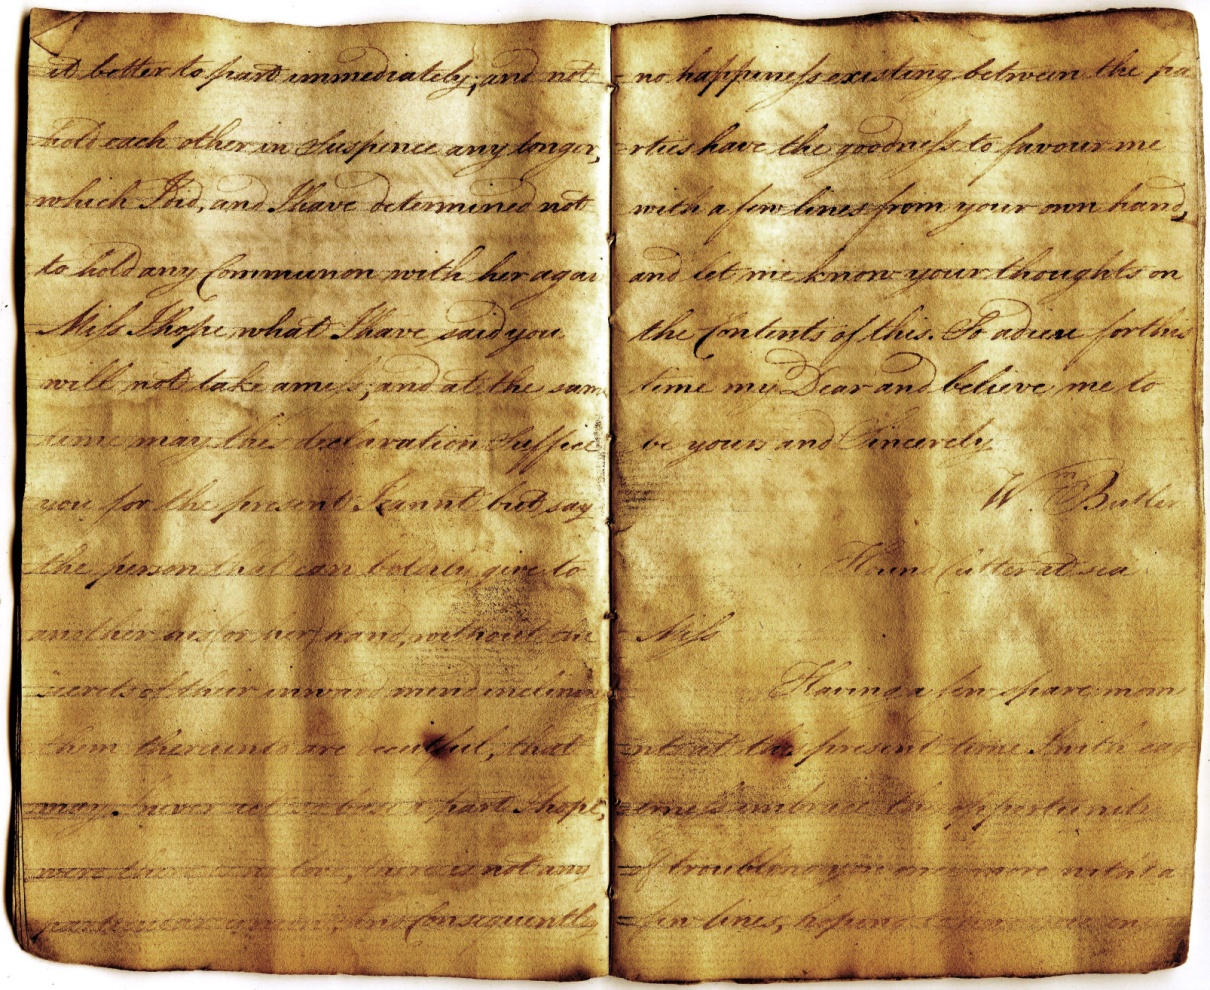 it better to part immediately; and not
hold each other in Suspence any longer,
which I did, and I have determined not
to hold any Communon with her agai
Miss I hope what I have said you
will not take amiss; and at the sam
time may this declaration Suffice
you for the present I cannt but say
the person that can boldly give to
another his (or her) hand, without
secrets of their inward mind
them thereunto are deceitful, that
may I never act a part I hope,
were there is no love, there is not any
and Consequently
no happiness existing between the pa
rties have the goodness to favour me
with a few lines from your own hand,
and let me know your thoughts on
the Contents of this. So adieu for this
time my Dear and believe me to
be yours and Sincerely
Wm Butler
Hound Cutter at sea
Miss
Having a few spare mom
nts at this present time I with
embrace the opportunity
of troubling you once more with a
few lines, hoping